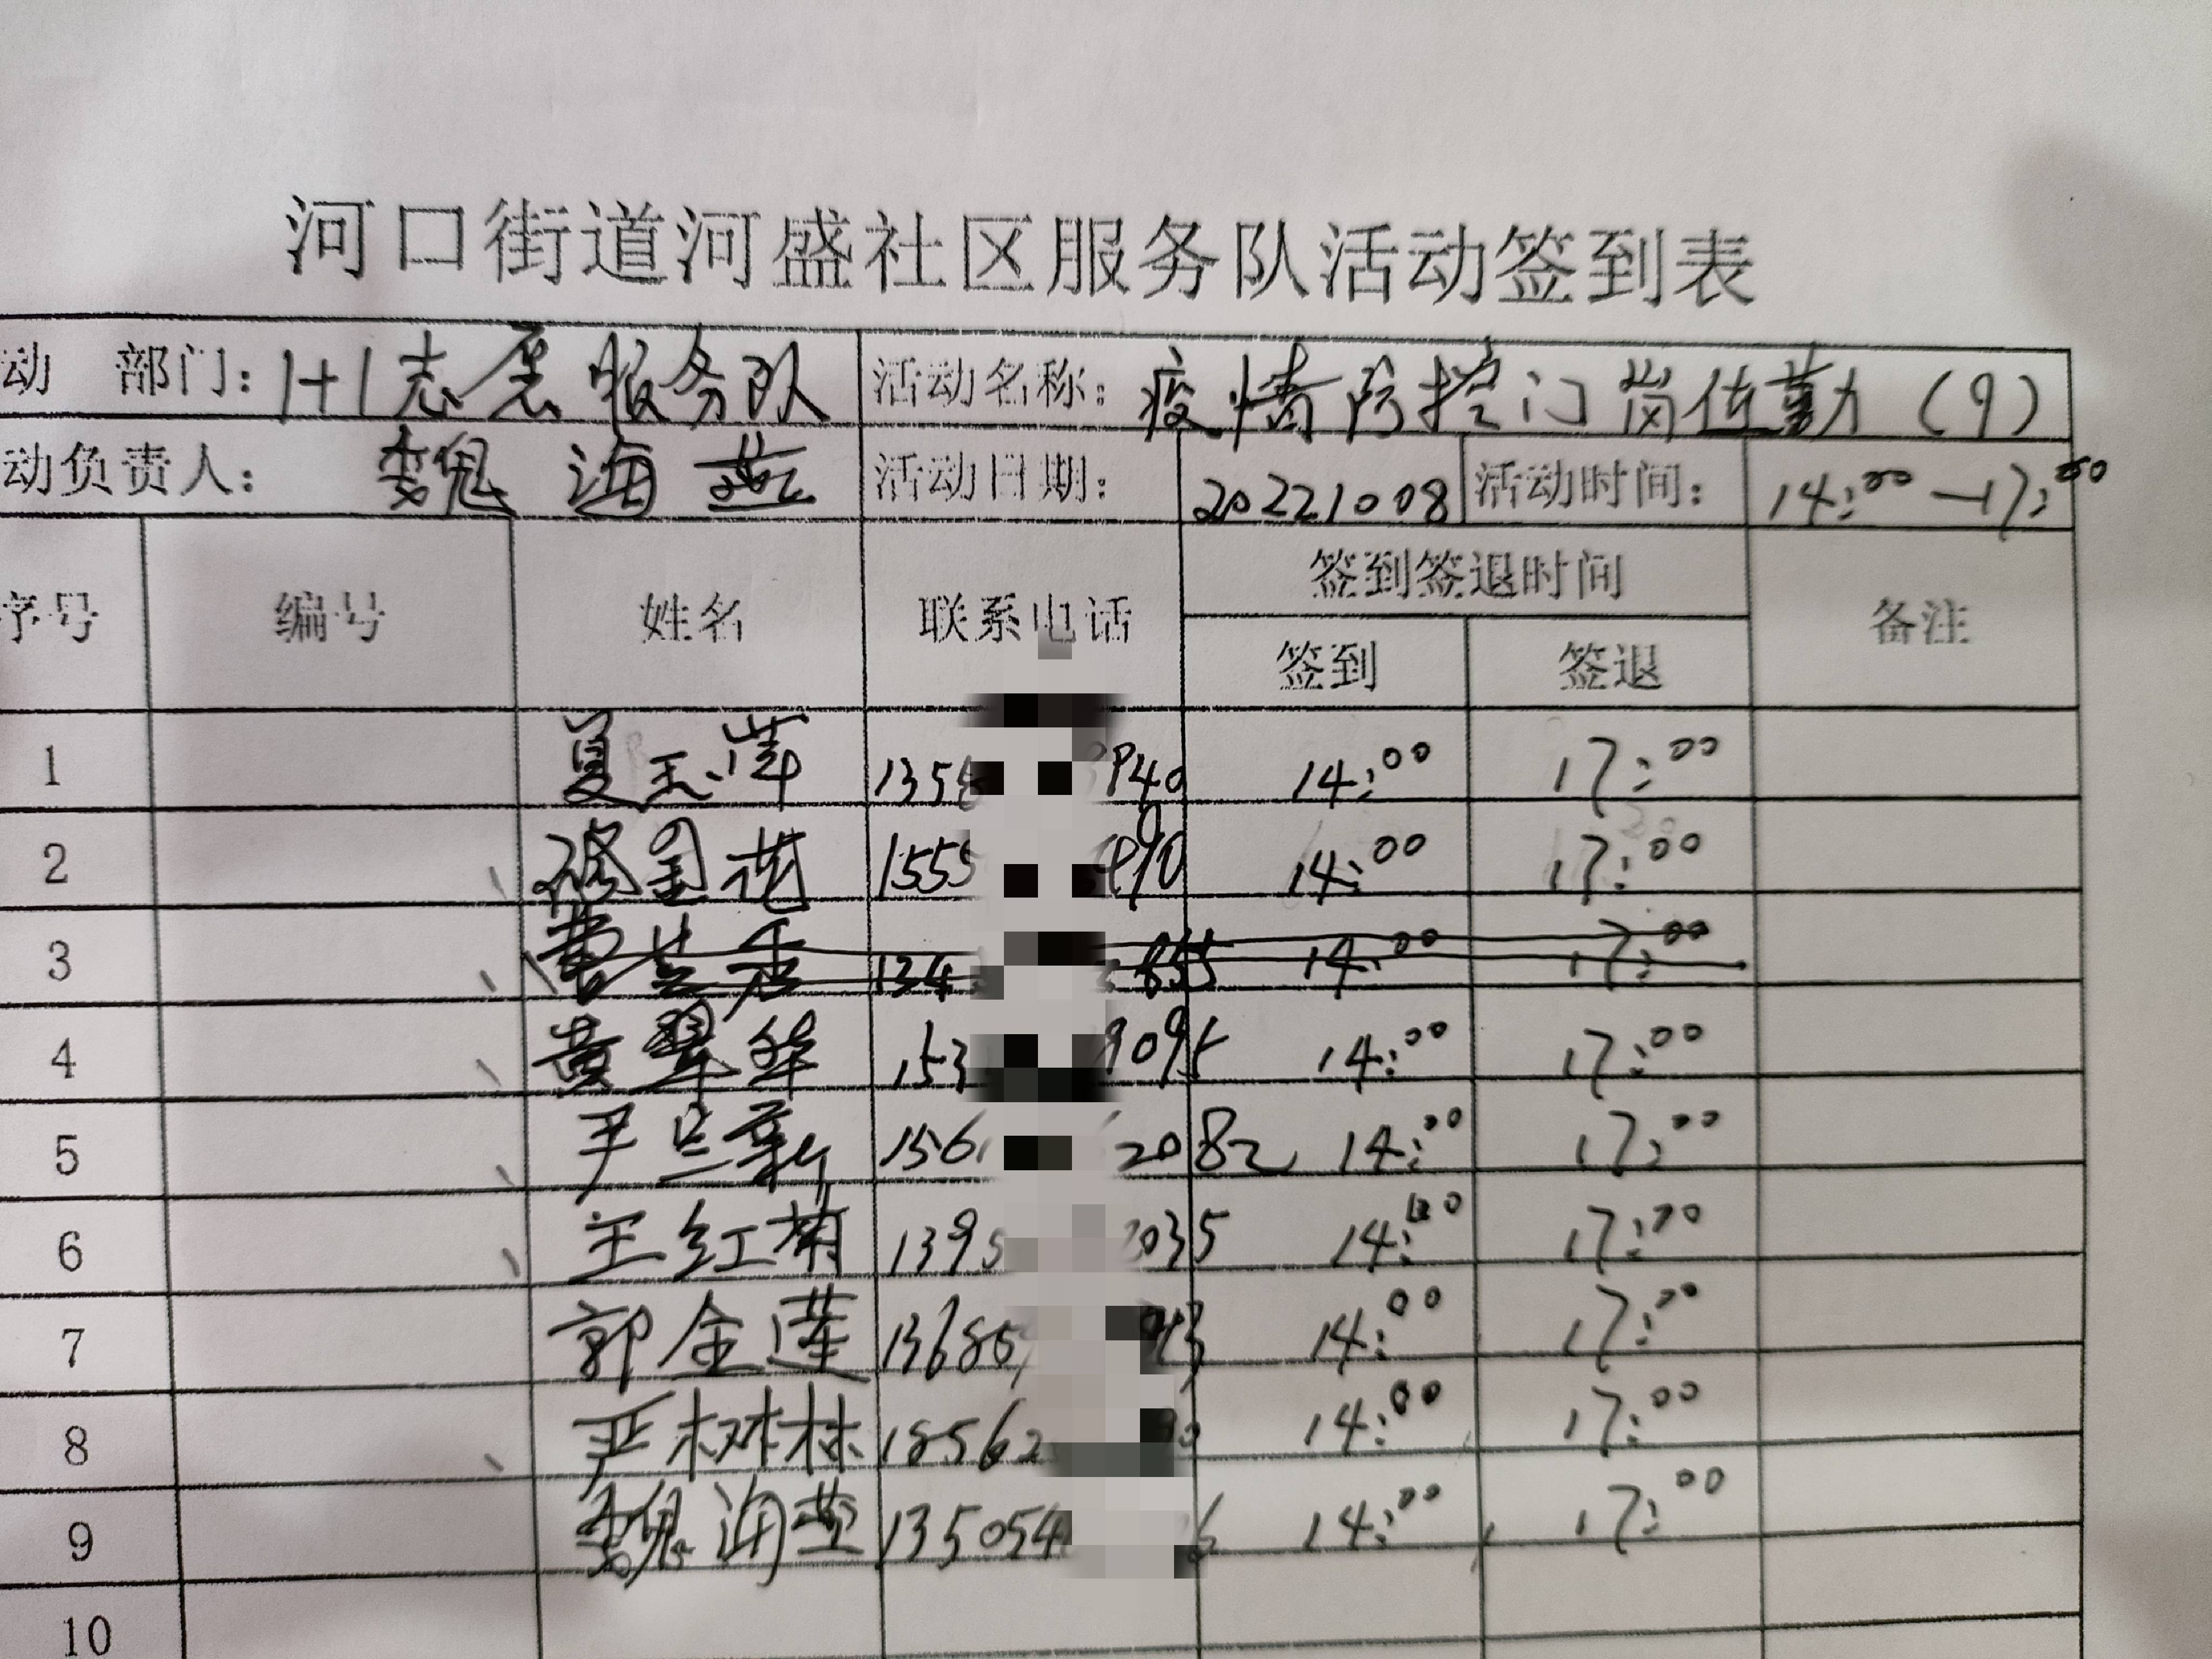 河口街道河盛社区服务队活动签到表
动 部门：1+1志愿服务队 活动名称：疫情防控门岗值勤（9）
动负责人： 魏海燕 活动日期： 20221008 活动时间： 14:00—17:00
序号 编号 姓名 联系电话 签到签退时间 备注
签到 签退
1 夏玉萍 1358 940 14:00 17:00
2 花 1555 90 14:00 17:00
3 134 855 14:00 17:00
4 黄翠华 153 9095 14:00 17:00
5 尹兰新 156 2082 14:00 17:00
6 王红菊 1395 2035 14:00 17:00
7 郭金莲 13685 43 14:00 17:00
8 严树林 18562 14:00 17:00
9 魏海燕 135054 6 14:00 17:00
10